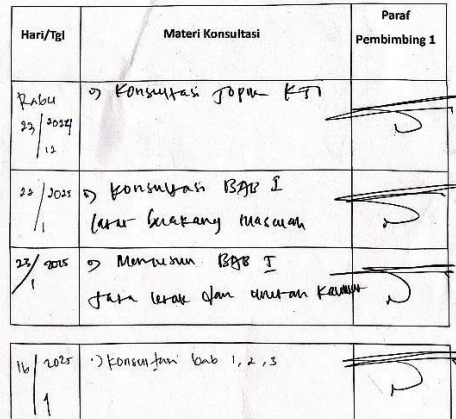 Hari/Tgl
Materi Konsultasi
Paraf
Pembimbing 1
Rabu
23/2024
12
Konsultasi Topik KTI
22/2025
1
Konsultasi BAB I
latar belakang masalah
23/2025
1
Menyusun BAB I
tata letak dan urutan kalimat
16/2025
1
Konsultasi bab 1, 2, 3